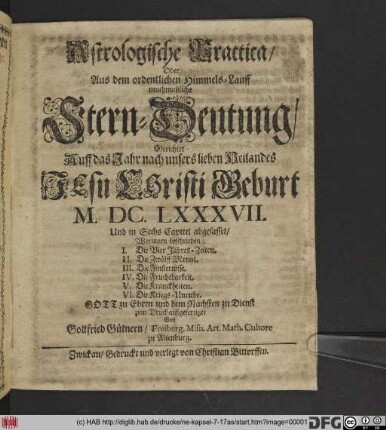 Astrologische Practica/
Oder
Aus dem ordentlichen Himmels-Lauff
muthmaßliche
Stern-Deutung/
Gerichtet
Auff das Jahr nach unsers lieben Heilandes
JEsu CHristi Geburt
M. DC. LXXXVII.
Und in Sechs Capitel abgefasset/
Worinnen beschrieben:
I. Die Vier Jahres-Zeiten.
II. Die Zwölff Monat.
III. Die Finsternisse.
IV. Die Fruchtbarkeit.
V. Die Kranckheiten.
VI. Die Kriegs-Unruhe.
GOTT zu Ehren und dem Nächsten zu Dienst
zum Druck außgefertiget
Von
Gottfried Güttnern / Freiberg. Misn. Art. Math. Cultore
zu Altenburg.
Zwickau/ Gedruckt und verlegt von Christian Bittorffen.
(c) HAB http://diglib.hab.de/drucke/ne-kapsel-7-17as/start.htm?image=00001
DFG